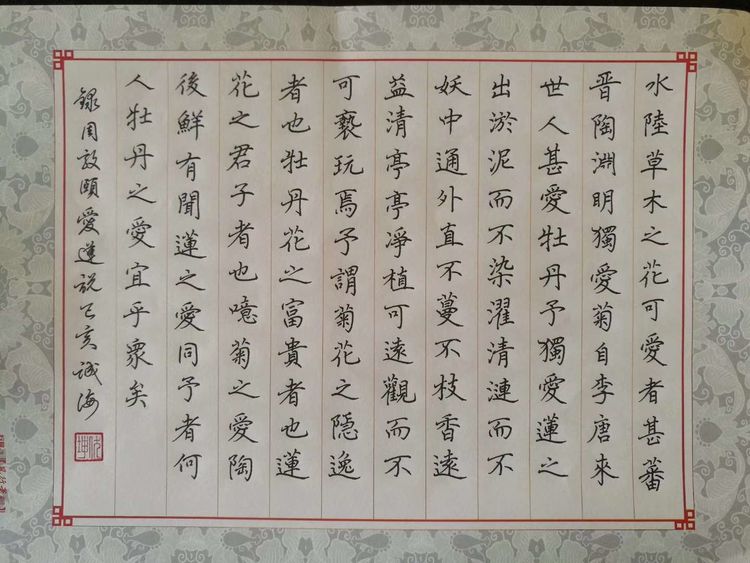 水陸草木之花可愛者甚蕃
晋陶淵明獨愛菊自李唐來
世人甚愛牡丹予獨愛蓮之
出淤泥而不染濯清漣而不
妖中通外直不蔓不枝香遠
益清亭亭淨植可遠觀而不
可褻玩焉予謂菊花之隱逸
者也牡丹花之富貴者也蓮
花之君子者也噫菊之愛陶
後鮮有聞蓮之愛同予者何
人牡丹之愛宜乎衆矣
錄周敦頤愛蓮說己亥誠海